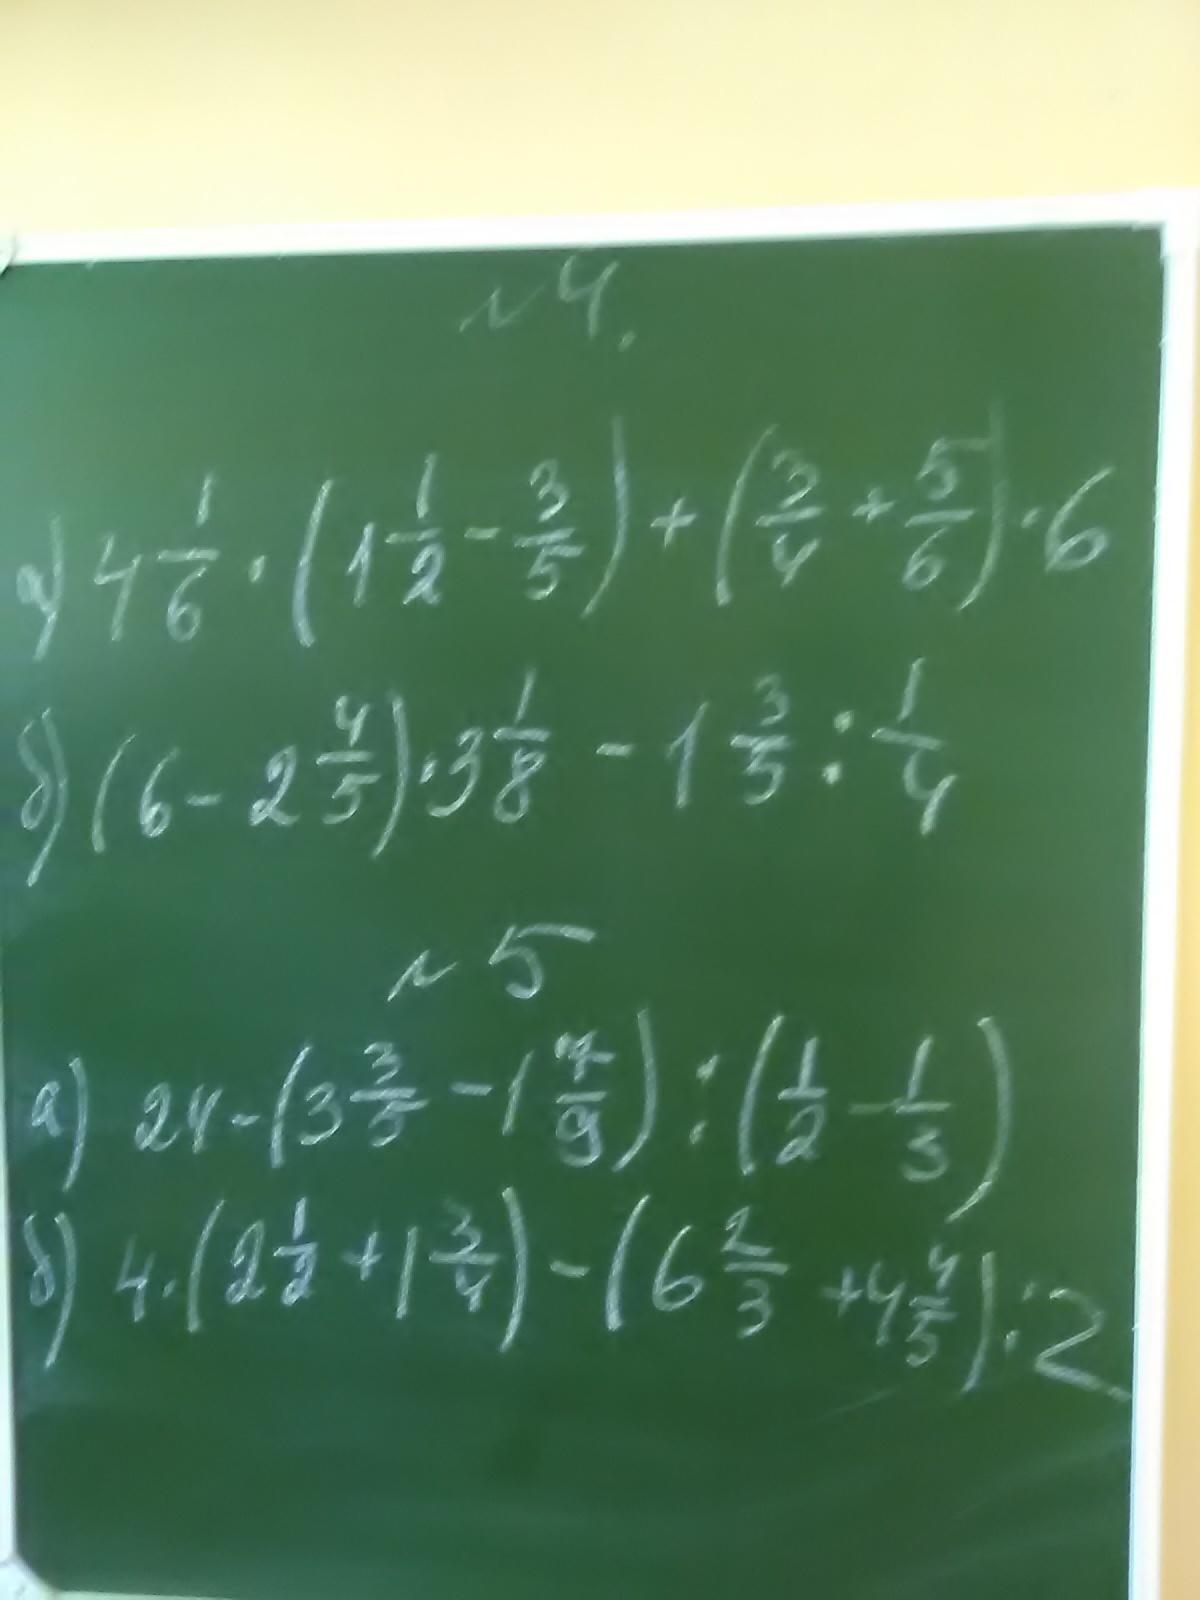 №4.
а) 4 1/6 · (1 1/2 - 3/5) + (3/4 + 5/6) · 6
б) (6 - 2 4/5) · 3 1/8 - 1 3/5 : 1/4
№5
а) 24 - (3 3/5 - 1 7/9) : (1/2 - 1/3)
б) 4 · (2 1/2 + 1 3/4) - (6 2/3 + 4 4/5) : 2